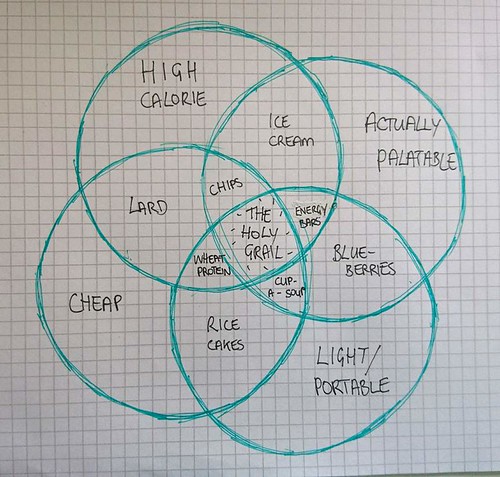 HIGH
CALORIE
ICE
CREAM
ACTUALLY
PALATABLE
CHIPS
LARD
THE
HOLY
GRAIL
ENERGY
BARS
WHEAT
PROTEIN
BLUE-
BERRIES
CUP-
A-SOUP
CHEAP
RICE
CAKES
LIGHT/
PORTABLE